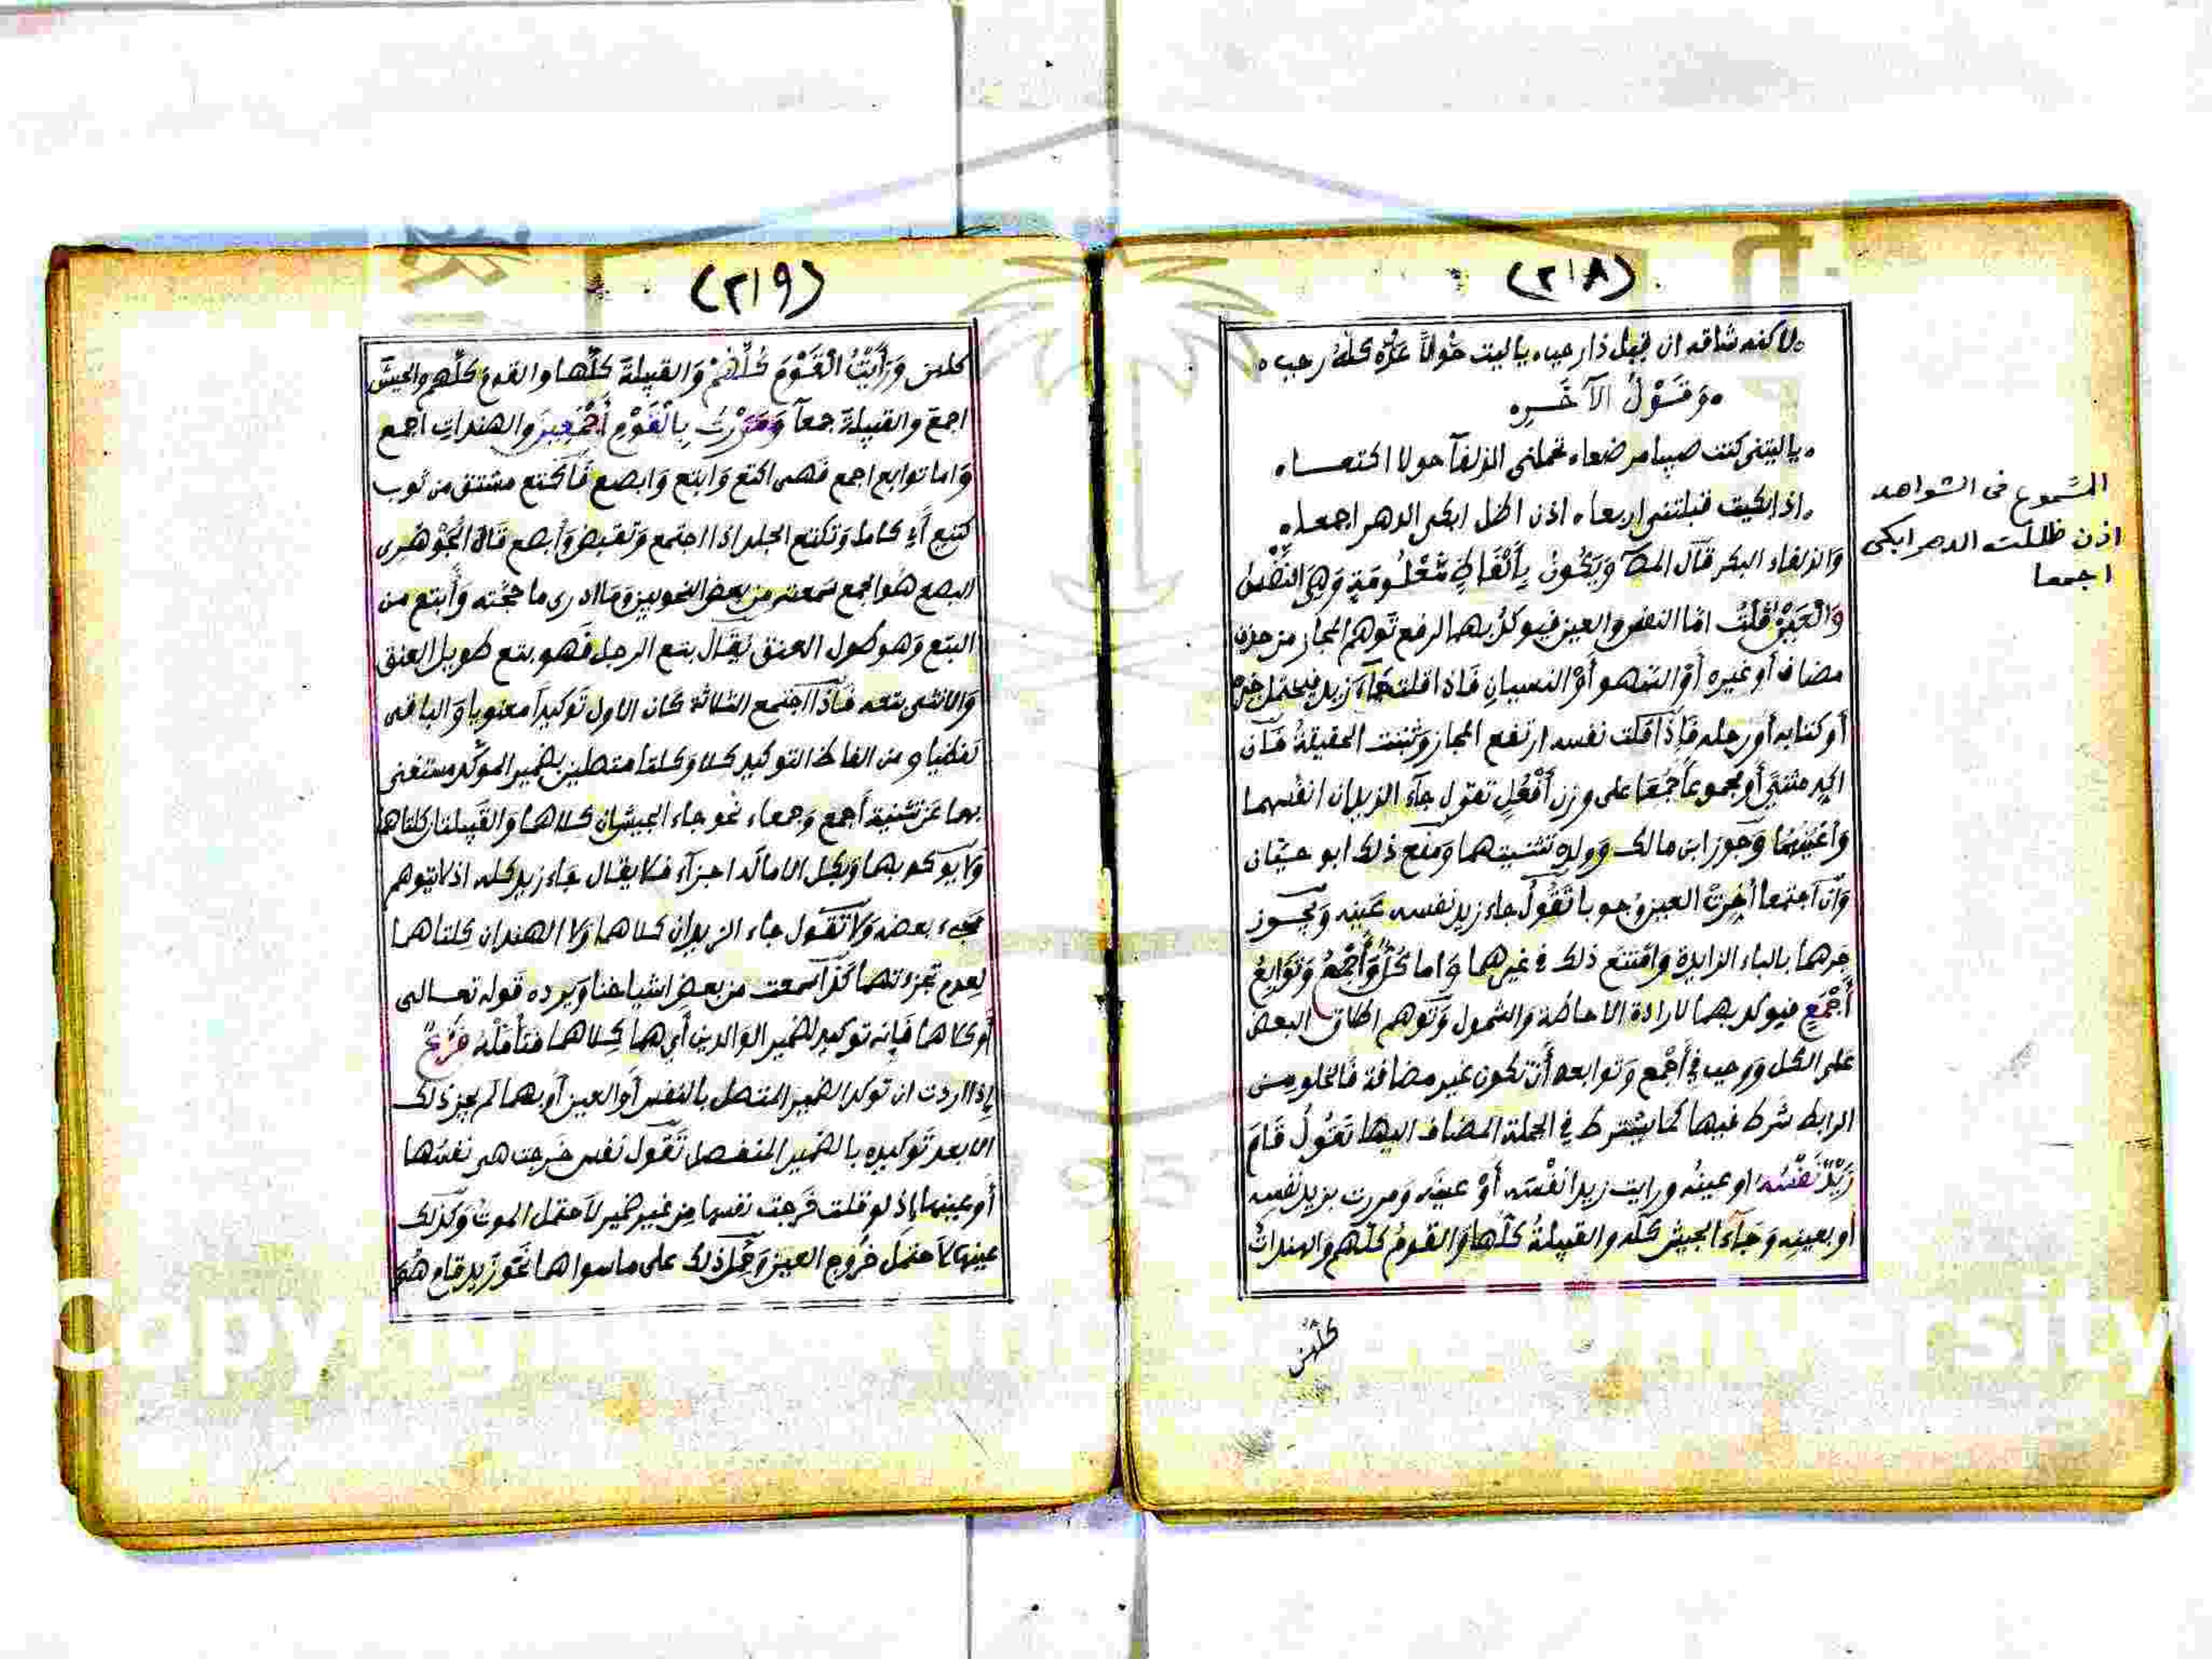 (٢١٨)
لاكنه شاقه ان قيل ذا رجب ياليت حولاً عدة كله رجب
وَقَوْلُ الآخَرِ
ياليتنى كنت صبيا مرضعا تحملنى الذلفآ حولا اكتعا
اذا بكيت قبلتنى اربعا اذن اظل ابكى الدهر اجمعا
والذلفاء البكر قَال المصَ وَيَكُونُ بِأَلْفَاظٍ مَعْلُومَةٍ وَهِيَ النَّفْسُ
وَالْعَيْنُ قلتُ امّا النفس والعين فيوكد بهما الرفع تَوهم المجاز من حذف
مضاف أو غيره أَوْ السَّهو أَوْ النسيانِ فَاذا قلت جَآءَ زيد فيحتمل خبره
أو كتابه أو رحله فَإِذَا قلت نفسه ارتفع المجاز وثبتت الحقيقة فَان
اكد مثنىً أو مجموعاً جُمعَا على وزن أَفْعُلٍ تقول جآء الزيدان انفسهما
وأعينهما وَجَوز ابن مالك وَولده تثنيتهما وَمنع ذلك ابو حيّان
وَان اجتمعا أُخِرتْ العين وجوبا تَقُولُ جاء زيد نفسه عَينه وَيجوز
جرهما بالباء الزايدة وَامْتنع ذلك في غيرهما وَاما كُلٌّ وَأَجْمَعُ وَتَوَابِعُ
أَجْمَعٍ فيوكد بهما لارادة الاحاطة والشمول وَتَوهم اطلاق البعض
على الكل ووجب في أَجْمع وَتوابعه أَن تكون غير مضافة فَالخلو من
الرابط شَرط فيها كما يشترط في الجملة المضاف اليها تَقُولُ قَامَ
زَيْدٌ نَفْسُهُ او عينُه ورايت زيدا نفْسَه أَوْ عينَه وَمررت بزيد نفسِه
او بعينِه وَجَآء الجيش كلُه والقبيلةُ كلُها وَالقومُ كلُهم والهنداتُ
كلهن
المسموع فى الشواهد
اذن ظللت الدهر ابكى
اجمعا
(٢١٩)
كلهن وَرَأَيْتُ الْقَوْمَ كُلَّهُمْ وَالقبيلةَ كلَّها والقومَ كلَّهم والجيشَ
اجمعَ والقبيلةَ جمعآ وَمَرَرْتُ بِالْقَوْمِ أَجْمَعِينَ والهنداتِ اجمع
وَاما توابع اجمع فَهى اكتع وَابتع وَابصع فَأكتع مشتق من ثوب
كتيع أَي كامل وَتكتع الجلد اذا اجتمع وَتقبض وَأبصع قَالَ الْجَوْهَرِى
البصع هُو الجمع سَمعته من بعض النحويين وَمَا ادرى ما حجته وَأَبتع من
البتع وَهو طول العنق يُقَال بتع الرجل فَهو بتع طويل العنق
وَالانثى بتعه فَاذا اجتمع الثلاثة كان الاول تَوكيداً معنويا وَالباقى
لفظيا و من الفاظ التوكيد كلا وَكلتا متصلين بضمير الموكَّد مستغنى
بهما عَن تثنية أَجمع وَجمعاء نحو جاء الجيشان كلاهما وَالقَبِيلتان كلتاهما
وَلا يوكد بهما وَبكل الا ما لَه اجزآء فَلا يقال جَاء زيد كله اذ لا يتوهم
مجىء بعضه وَلا تَقول جاء الزيدان كلاهما وَلا الهندان كِلتاهما
لِعدم تجزءتهما كَذا سمعت من بعض اشياخنا وَيرده قَوله تعالى
أَو كلاهما فَإنه توكيد لضمير الوالدين أَي هما كِلاهما فتأمله فَرْعٌ
إِذا اردت ان توكد الضمير المتصل بالنفس أَو العين أَو بهما لَم يجز ذلك
الا بعد تَوكيده بالضمير المنفصل تَقول نَفس خَرجت هى نفسُها
أَو عينها إذ لو قلت خَرجت نفسها مِن غير ضمير لاَحتمل الموت وَكذلك
عينها لاَحتمل خُروج العين وَحُمِل ذلك على ما سواهما نَحو زيد قام هُو